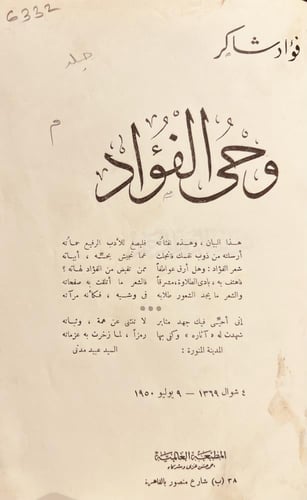 6332
فؤاد شاكر
جلد
م
وحى الفؤاد
هذا البيان، وهذه نفثاته فليصغ للأدب الرفيع عماته
أرسلته من ذوب نفسك فانجلت عما تجيش بحسه، أبياته
شعر الفؤاد: وهل أرق عواطفاً ممن تفيض من الفؤاد لهاته؟
فاهتف به « بادى الطلاوة » مشرقاً فالشعر ما ائتلفت به صفحاته
والشعر ما يجد الشعور طلابه فى وشيه، فكأنه مرآته
***
إنى أحيى فيك جهد مثابر لا تنثنى عن همة، وثباته
شهدت له « آثاره » وكفى بها رمزاً، لما زخرت به عزماته
المدينة المنورة: السيد عبيد مدنى
٤ شوال ١٣٦٩ — ٩ يوليو ١٩٥٠
المطبعة العالمية
٣٨ (ب) شارع منصور بالقاهرة